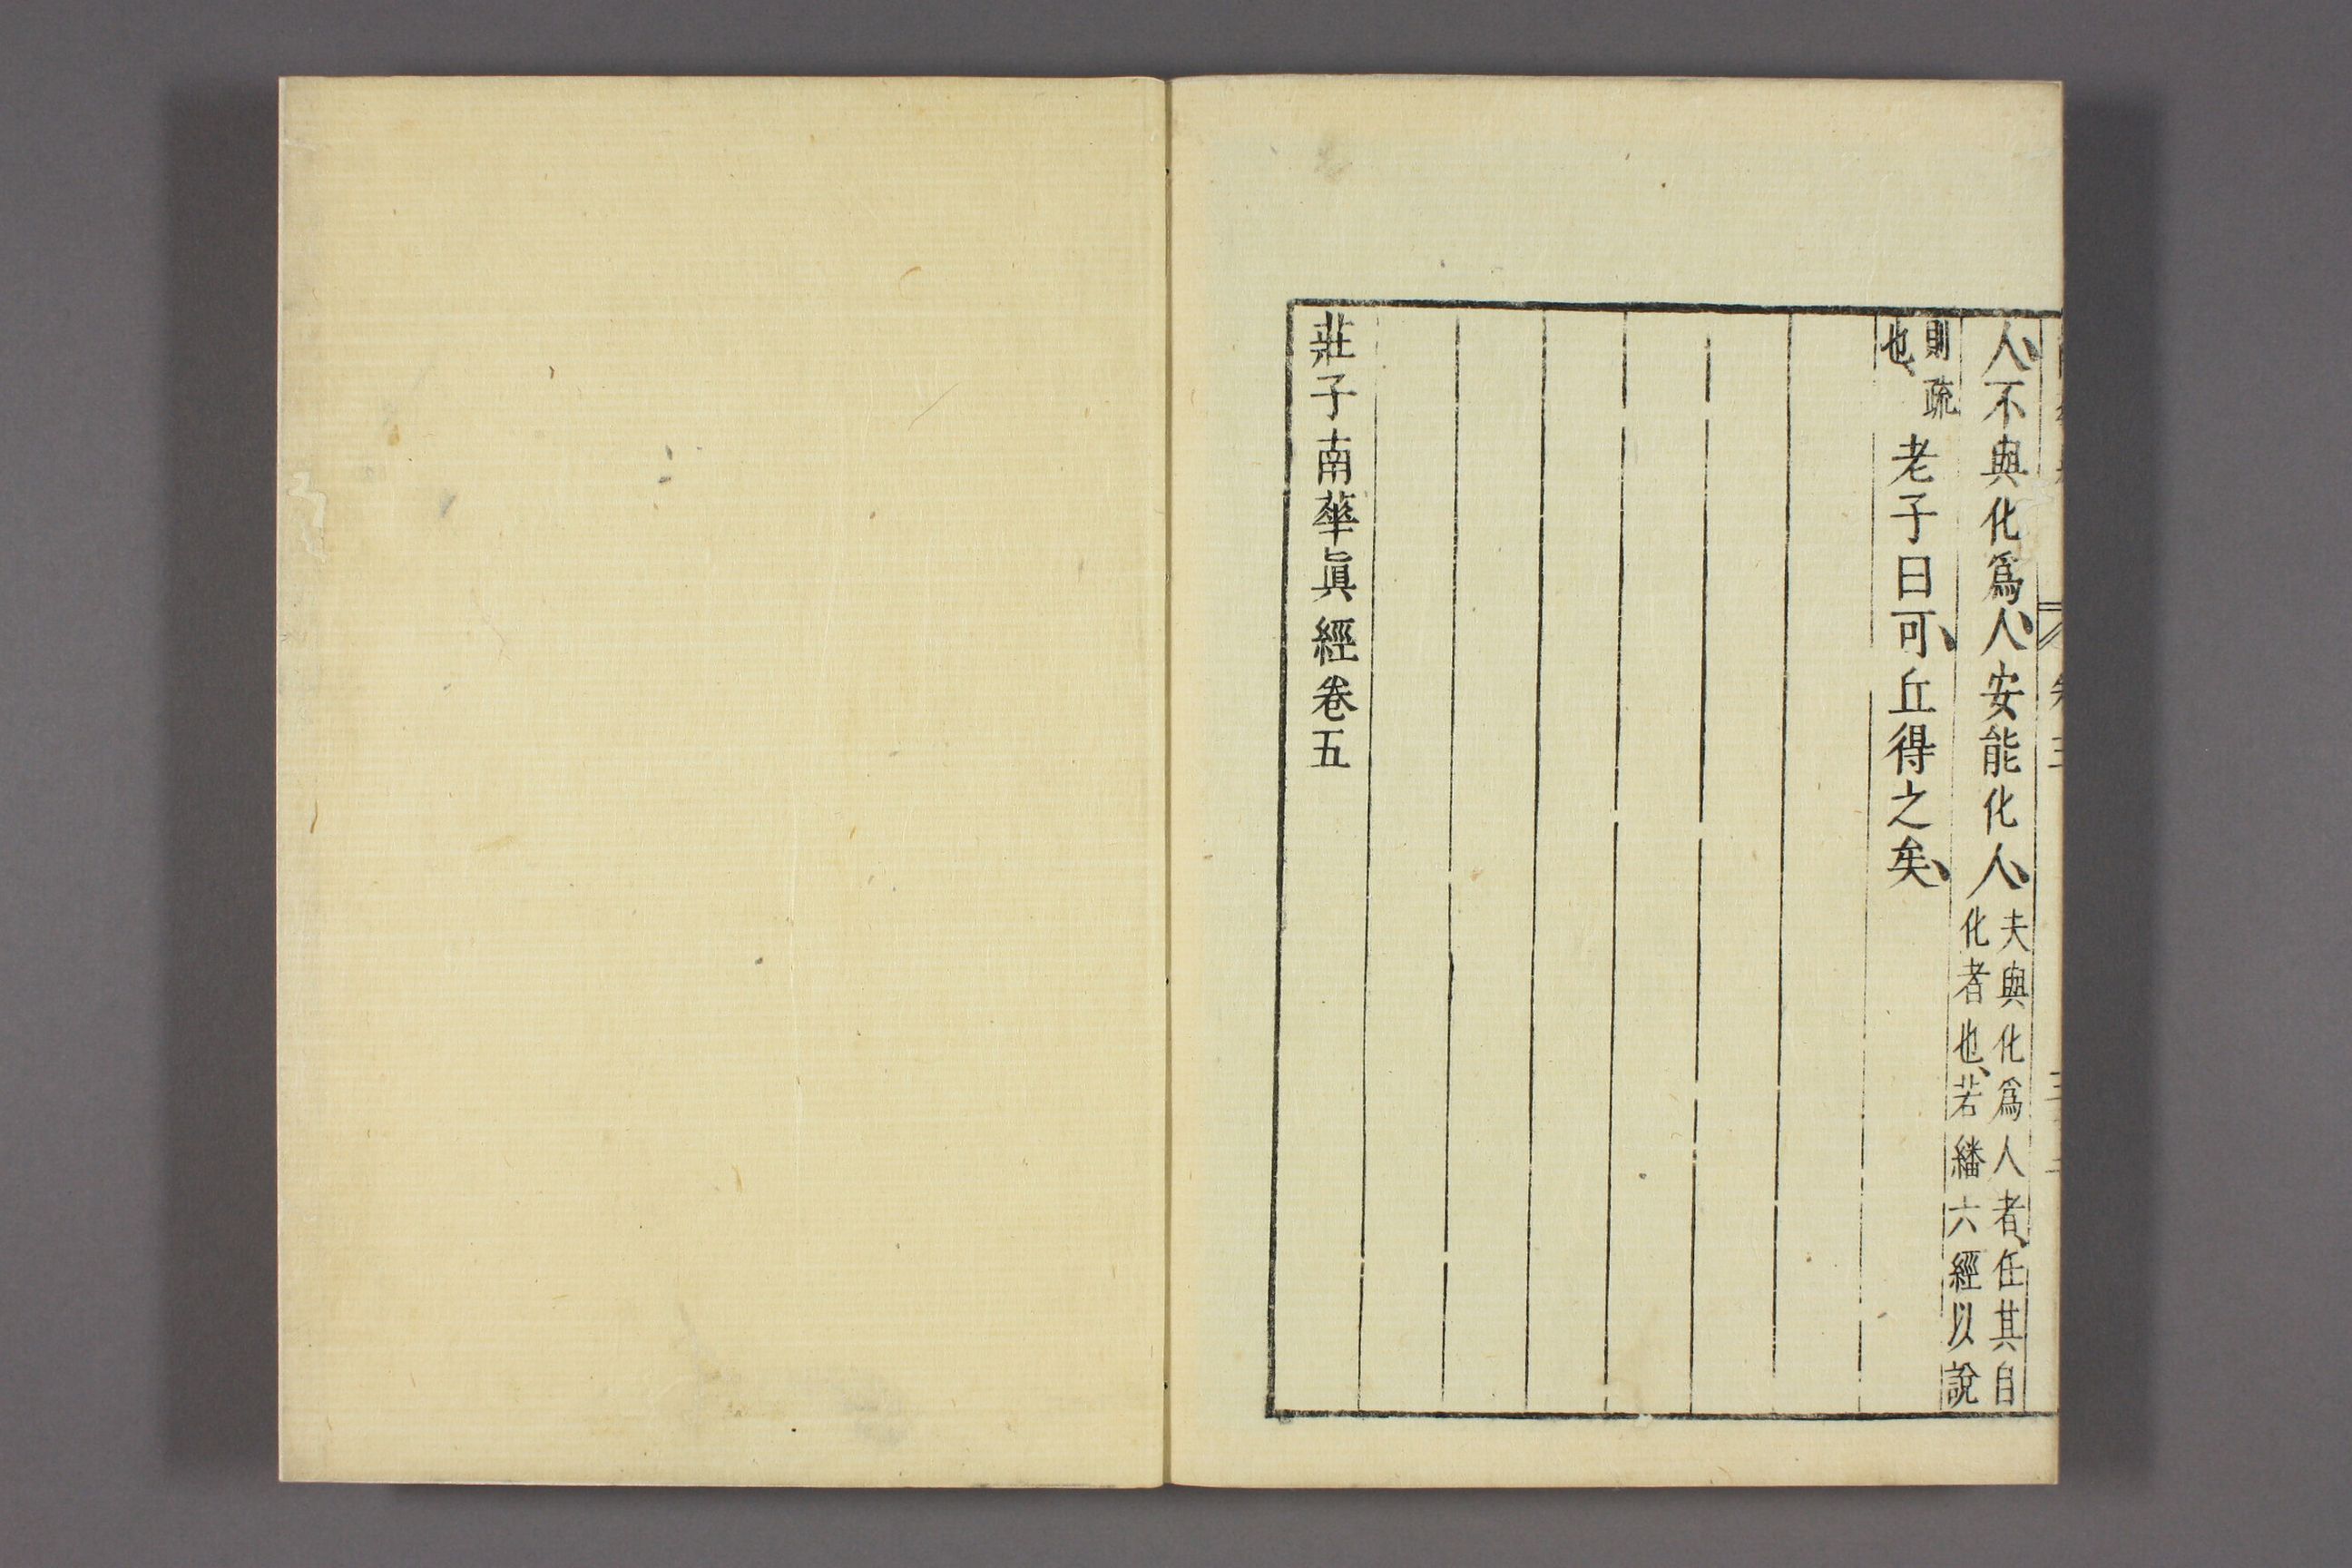 人、不與化爲人、安能化人、夫與化爲人者、任其自化者也、若繙六經以說
則疏也、老子曰可、丘得之矣、
莊子南華眞經卷五